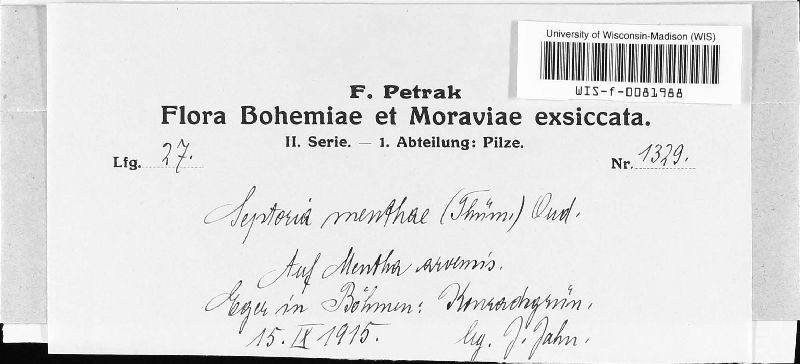 University of Wisconsin-Madison (WIS)
WIS-f-0081988
F. Petrak
Flora Bohemiae et Moraviae exsiccata.
II. Serie. — 1. Abteilung: Pilze.
Lfg. 27. Nr. 1329.
Septoria menthae (Thüm.) Oud.
Auf Mentha arvensis.
Eger in Böhmen: Konradsgrün.
15. IX 1915. leg. J. Jahn.